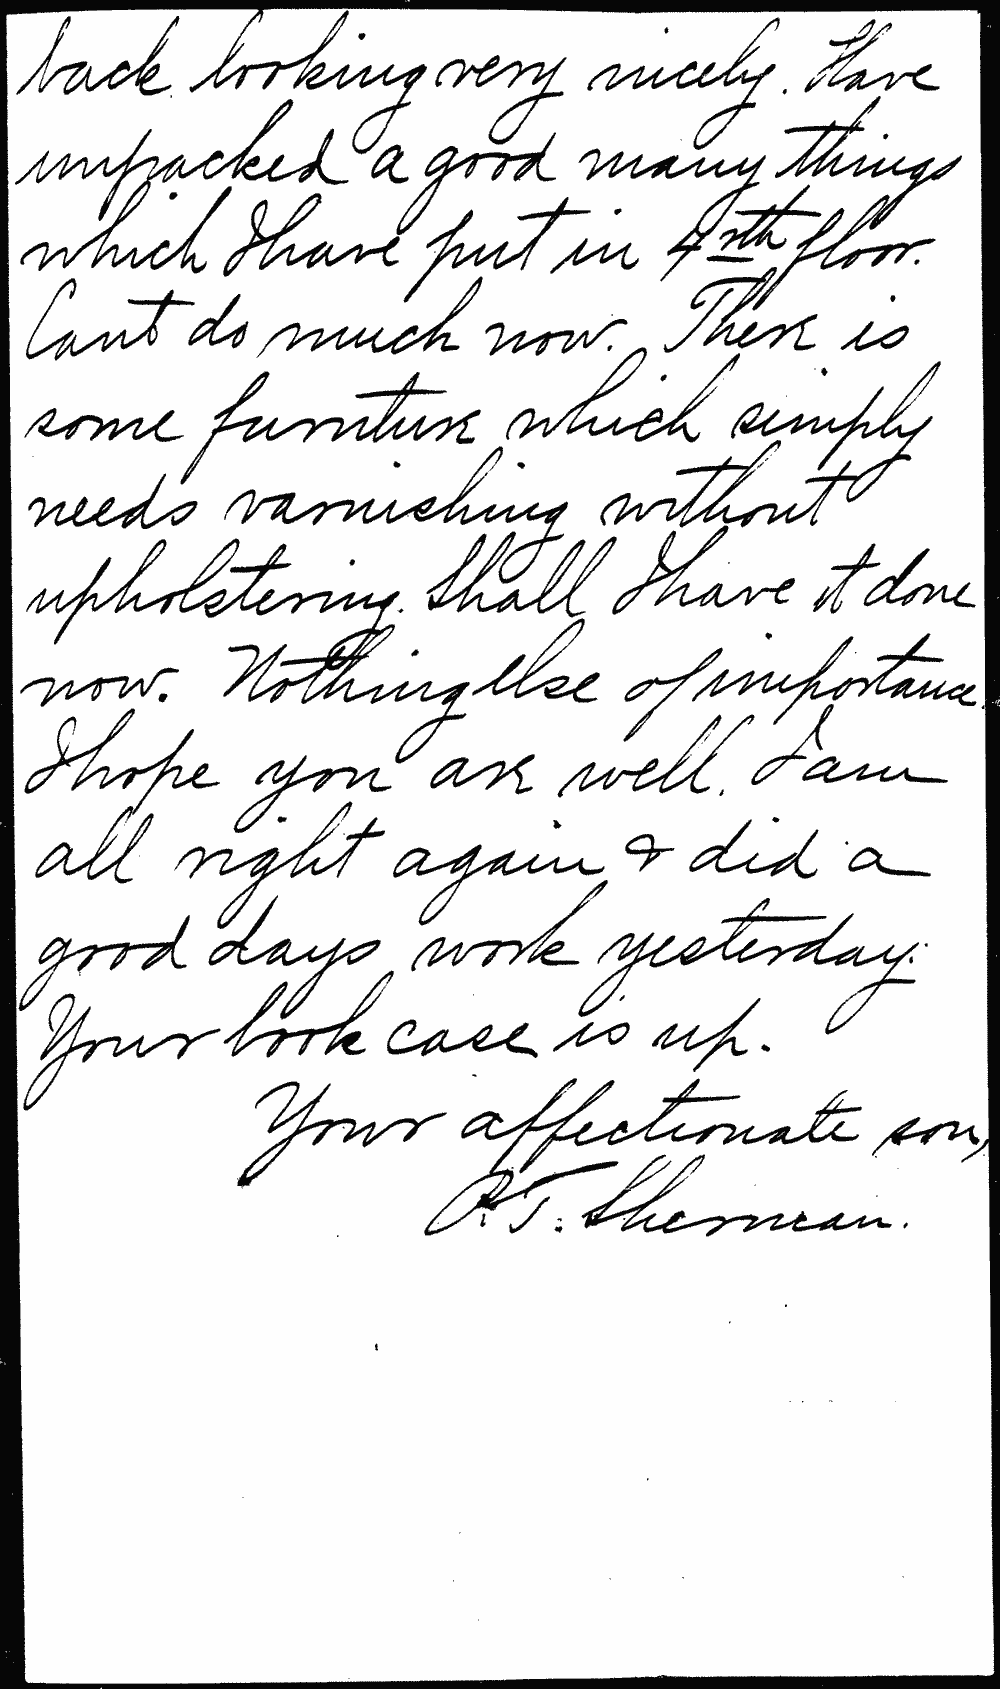 back looking very nicely. Have
unpacked a good many things
which I have put in 4rth floor.
Cant do much now. There is
some furniture which simply
needs varnishing without
upholstering. Shall I have it done
now. Nothing else of importance.
I hope you are well. I am
all right again & did a
good days work yesterday.
Your book case is up.
Your affectionate son,
P. T. Sherman.